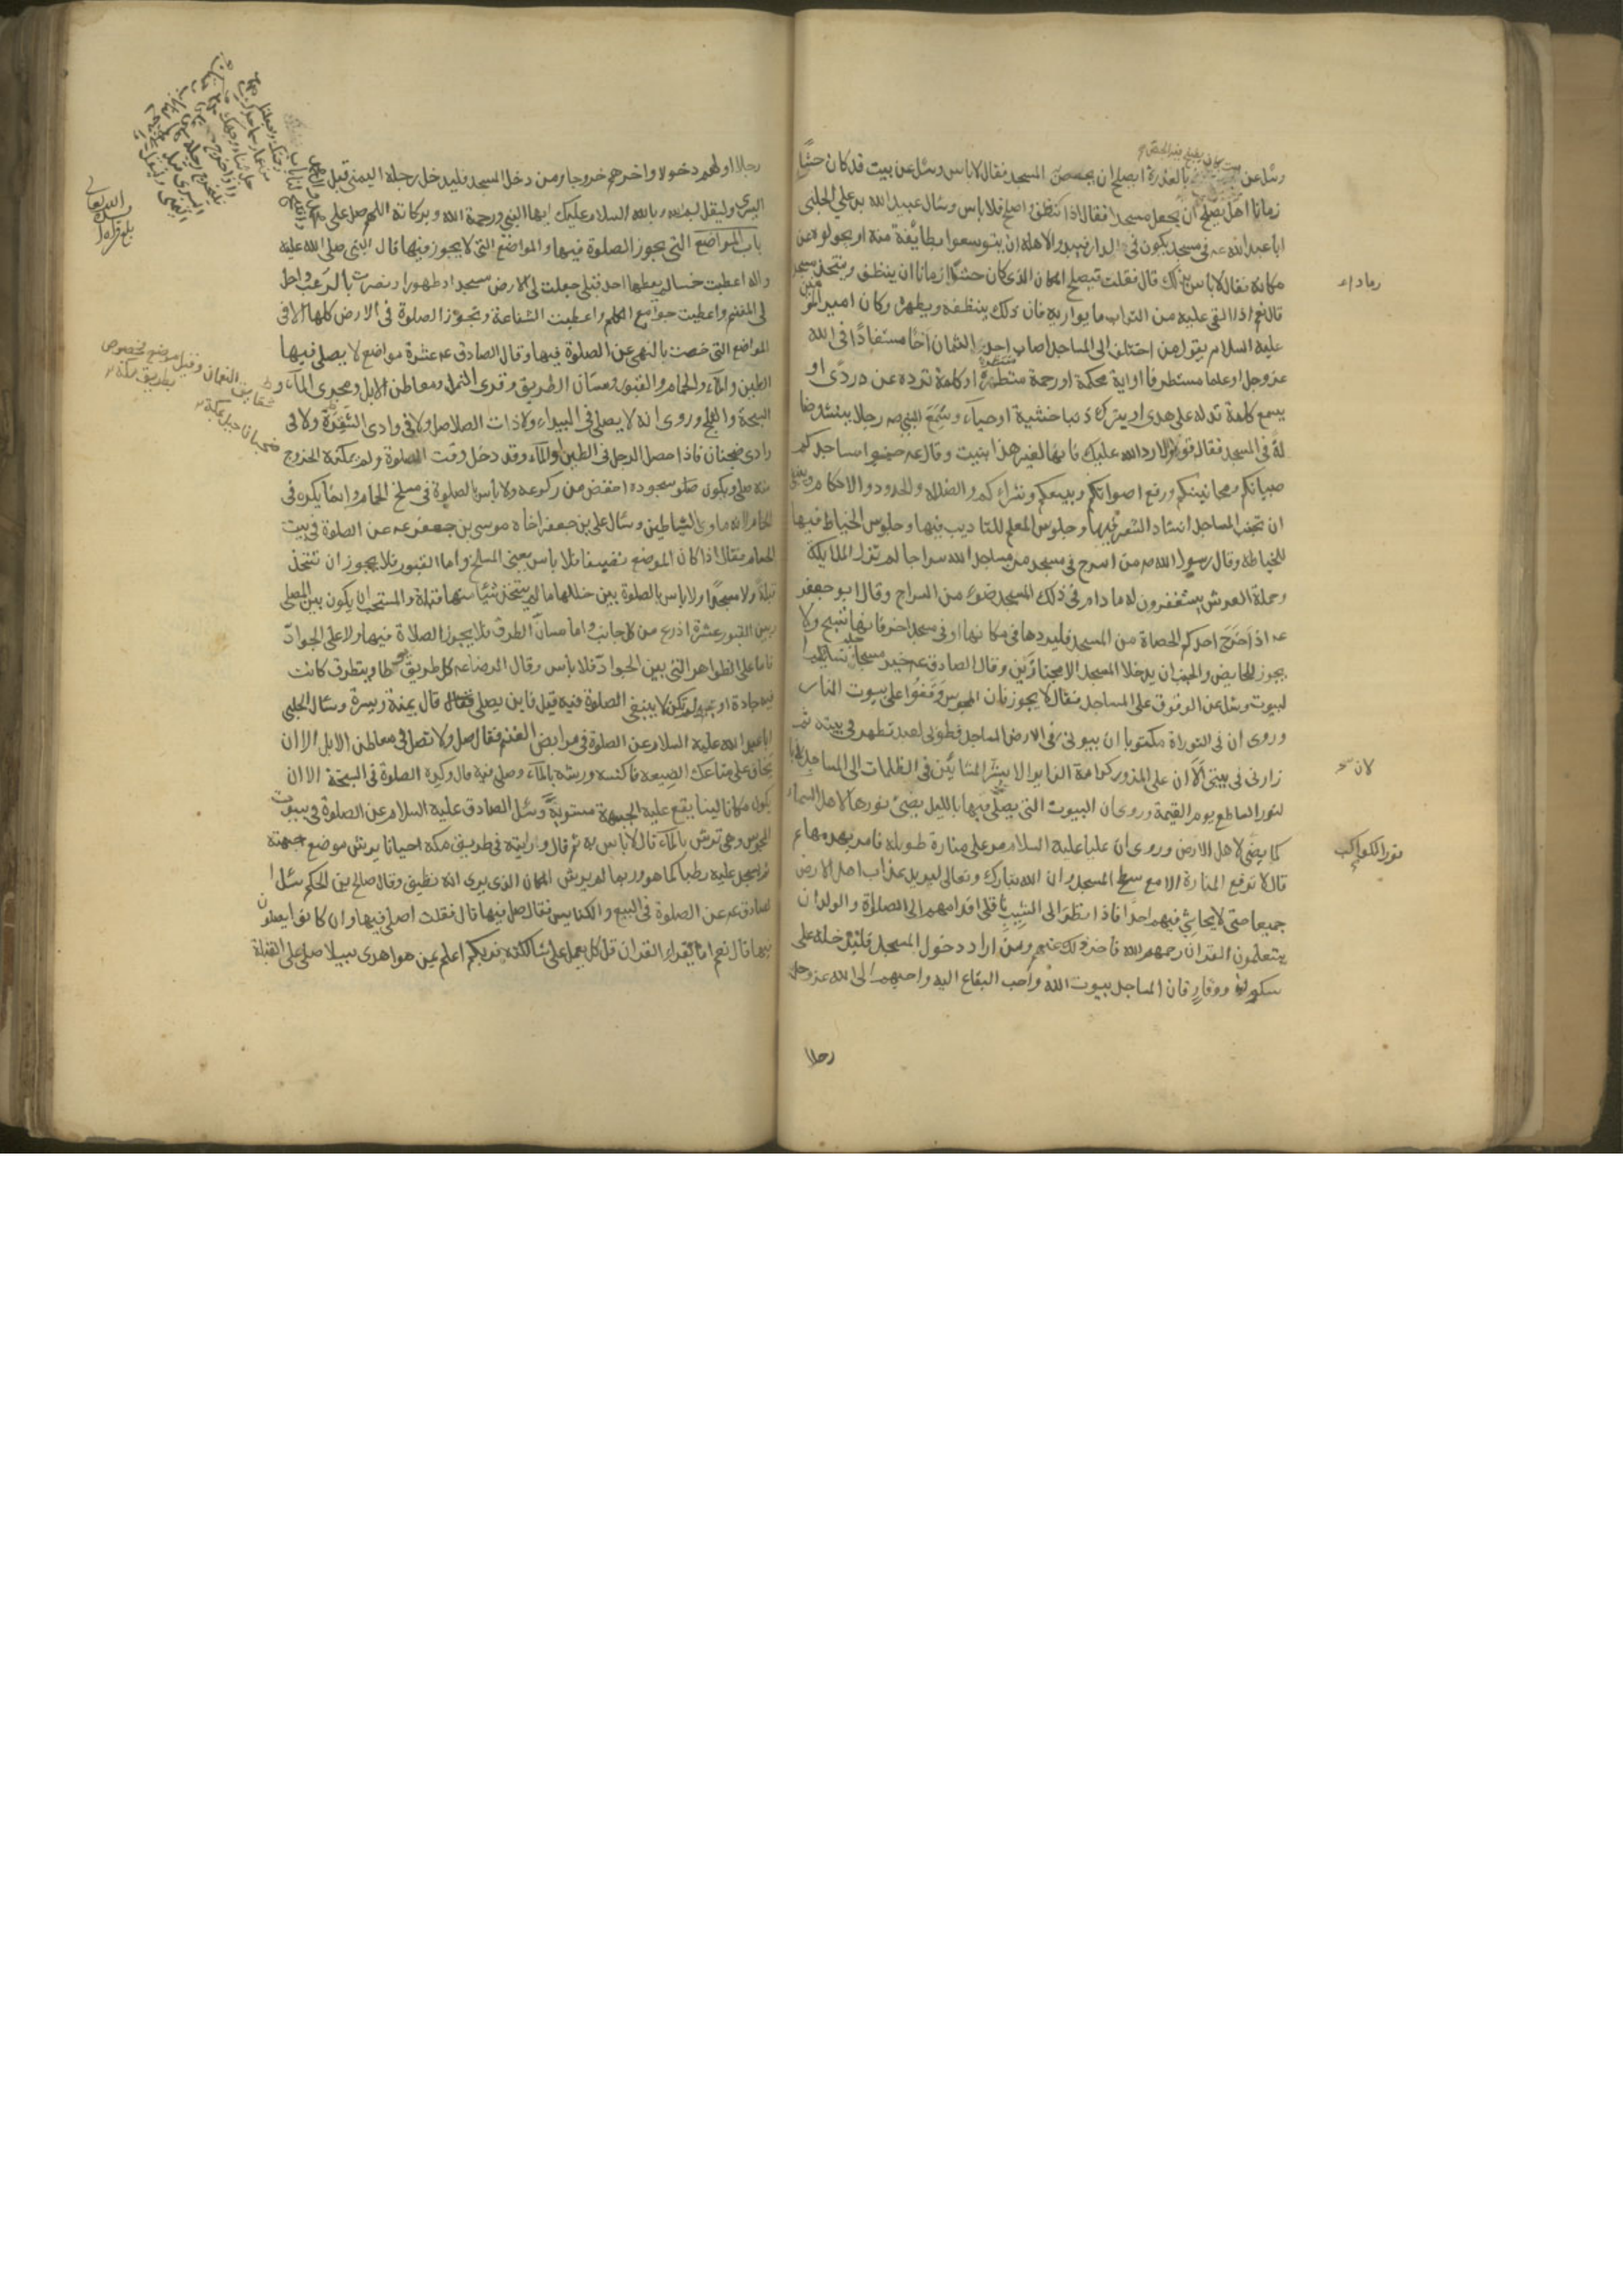 وسئل عن بيت كان يطبخ فيه الجص بالعذرة ايصلح ان يجصص المسجد فقال لا باس وسئل عن بيت قد كان حشا
زمانا هل يصلح ان يجعل مسجدا فقال اذا نظف واصلح فلا باس وسئال عبيد الله بن علي الحلبي
ابا عبد الله عه في مسجد يكون في الدار فيبدو لاهله ان يتوسعوا بطايفة منه او يحولوه عن
مكانه فقال لا باس بذلك قال فقلت فيصلح المكان الذى كان حشا زمانا ان ينظف ويتخذ مسجد
قال نعم اذا القى عليه من التراب ما يواريه فان ذلك ينظفه ويطهره وكان امير المومنين
عليه السلام يقول من اختلف الى المساجد اصاب احدى الثمان اخا مستفادا فى الله
عز وجل او علما مستطرفا او اية محكمة او رحمة منتظرة او كلمة ترده عن ردى او
يسمع كلمة تدله على هدى او يترك ذنبا خشية او حياء وسمع النبى صه رجلا ينشد ضا
لة فى المسجد فقال قولوا لا رد الله عليك فانها لغير هذا بنيت وقال عه جنبوا مساجدكم
صبيانكم ومجانينكم ورفع اصواتكم وبيعكم وشراءكم والضالة والحدود والاحكام وينبغى
ان تجنب المساجد انشاد الشعر فيها وجلوس المعلم للتاديب فيها وجلوس الخياط فيها
للخياطة وقال رسول الله صه من اسرج فى مسجد من مساجد الله سراجا لم تزل الملايكة
وحملة العرش يستغفرون له ما دام فى ذلك المسجد ضوء من السراج وقال ابو جعفر
عه اذا اخرج احدكم الحصاة من المسجد فليردها فى مكانها او فى مسجد اخر فانها تسبح ولا
يجوز للحايض والجنب ان يدخلا المسجد الا مجتازين وقال الصادق عه خير مساجد نسايكم
البيوت وسئل عن الوقوف على المساجد فقال لا يجوز فان المجوس وقفوا على بيوت النار
وروى ان فى التوراة مكتوبا ان بيوتى فى الارض المساجد فطوبى لعبد تطهر فى بيته ثم
زارنى فى بيتى الا ان على المزور كرامة الزاير الا بشر المشائين فى الظلمات الى المساجد
لنور الساطع يوم القيمة وروى ان البيوت التى يصلى فيها بالليل يضئ نورها لاهل السماء
كما يضئ لاهل الارض وروى ان عليا عليه السلام مر على منارة طويلة فامر بهدمها ثم
قال لا ترفع المنارة الا مع سطح المسجد وان الله تبارك وتعالى ليريد عذاب اهل الارض
جميعا حتى لا يحاشى فيهم احدا فاذا نظر الى الشيب ناقلى اقدامهم الى الصلاة والولدان
يتعلمون القران رحمهم الله فاخر ذلك عنهم ومن اراد دخول المسجد فليدخله على
سكون ووقار فان المساجد بيوت الله واحب البقاع اليه واحبهم الى الله عز وجل
رجلا
لان
نور الكواكب
رجلا اولهم دخولا واخرهم خروجا ومن دخل المسجد فليدخل رجله اليمنى قبل
اليسرى وليقل بسم الله وبالله السلام عليك ايها النبى ورحمة الله وبركاته اللهم صل على
باب المواضع التى يجوز الصلوة فيها والمواضع التى لا يجوز فيها قال النبى صلى الله عليه
واله اعطيت خمسا لم يعطها احد قبلى جعلت لى الارض مسجدا وطهورا ونصرت بالرعب واحل
لى المغنم واعطيت جوامع الكلم واعطيت الشفاعة وتجوز الصلوة فى الارض كلها الا فى
المواضع التى خصت بالنهى عن الصلوة فيها وقال الصادق عه عشرة مواضع لا يصلى فيها
الطين والماء والحمام والقبور ومسان الطريق وقرى النمل ومعاطن الابل ومجرى الماء و
السبخة والثلج وروى انه لا يصلى فى البيداء ولا ذات الصلاصل ولا فى وادى الشقرة ولا فى
وادى ضجنان فاذا حصل الرجل فى الطين او الماء وقد دخل وقت الصلوة ولم يمكنه الخروج
منه صلى ويكون سجوده اخفض من ركوعه ولا باس بالصلوة فى مسلخ الحمام وانما يكره فى
الحمام لانه ماوى الشياطين وسئال على بن جعفر اخاه موسى بن جعفر عه عن الصلوة فى بيت
الحمام فقال اذا كان الموضع نظيفا فلا باس يعنى المسلخ واما القبور فلا يجوز ان تتخذ
قبلة ولا مسجدا ولا باس بالصلوة بين خللها ما لم يتخذ شئ منها قبلة والمستحب ان يكون بين المصلى
وبين القبور عشرة اذرع من كل جانب واما مسان الطرق فلا يجوز الصلاة فيها ولا على الجواد
فاما على الظواهر التى بين الجواد فلا باس وقال الرضا عه كل طريق يوطا ويتطرق كانت
فيه جادة او لم تكن لا ينبغى الصلوة فيه قيل فاين يصلى قال يمنة ويسرة وسئال الحلبى
ابا عبد الله عليه السلام عن الصلوة فى مرابض الغنم فقال صل ولا تصل فى معاطن الابل الا ان
تخاف على متاعك الضيعة فاكنسه ورشه بالماء وصل فيه قال وكره الصلوة فى السبخة الا ان
يكون مكانا لينا يقع عليه الجبهة مستوية وسئل الصادق عليه السلام عن الصلوة فى بيوت
المجوس وهى ترش بالماء قال لا باس به ثم قال ورايته فى طريق مكة احيانا يرش موضع جبهته
ثم يسجد عليه رطبا كما هو وربما لم يرش المكان الذى يرى انه نظيف وقال صالح بن الحكم سئل
الصادق عه عن الصلوة فى البيع والكنايس فقال صل فيها قال فقلت اصلى فيها وان كانوا يصلون
فيها قال نعم اما تقراء القران قل كل يعمل على شاكلته فربكم اعلم بمن هو اهدى سبيلا صل على القبلة
شقايق النعمان وقيل موضع مخصوص
بطريق مكة
ضجنان جبل بمكة